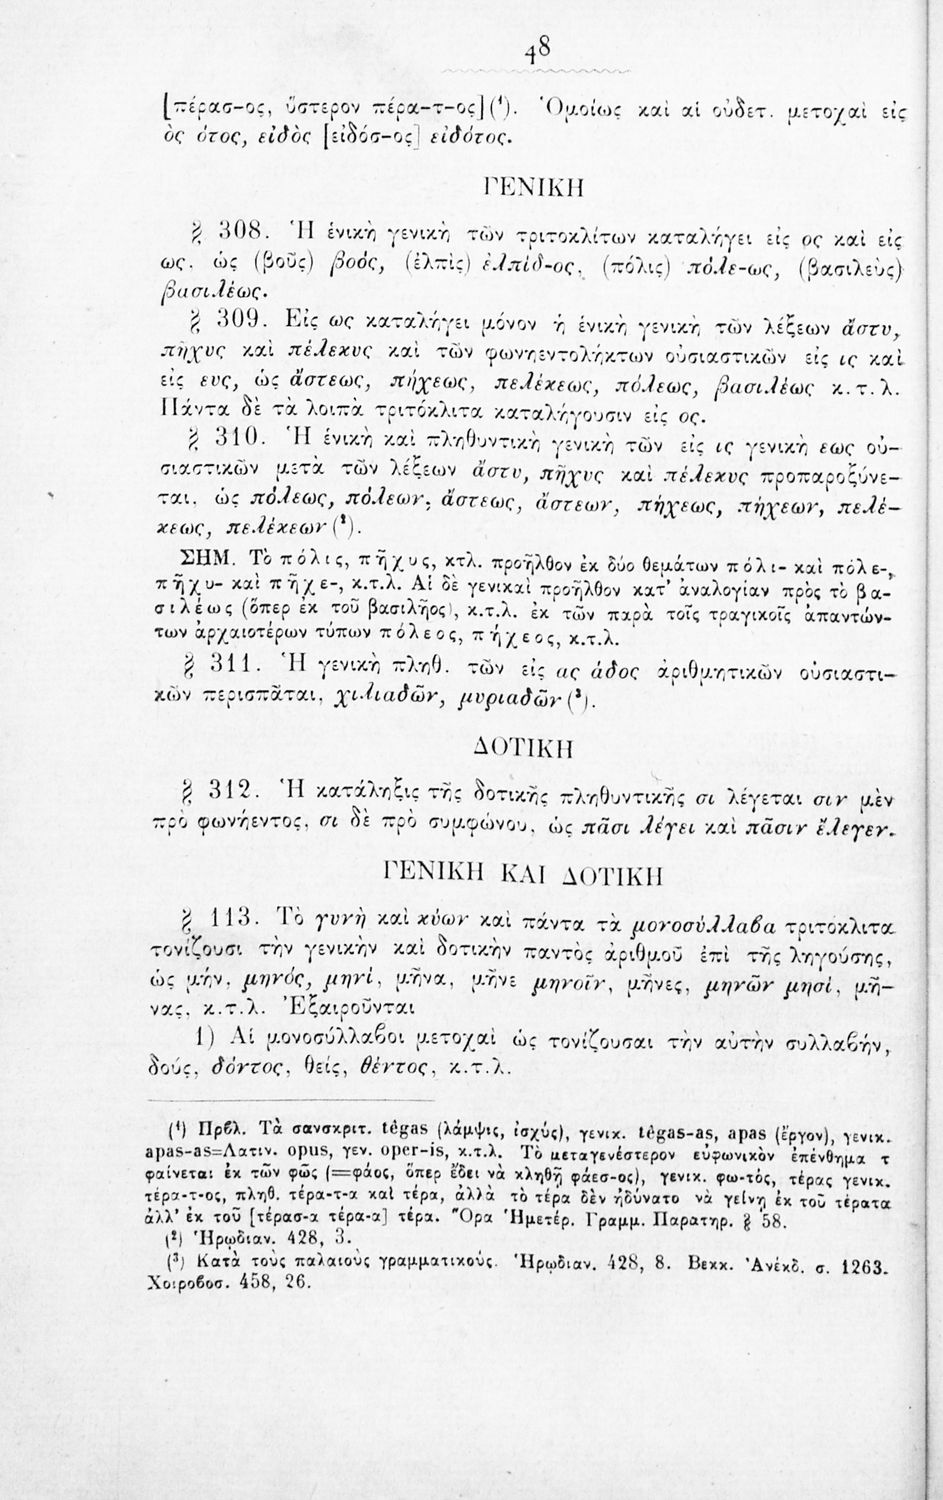 48
[πέρασ-ος, ὕστερον πέρα-τ-ος](¹). Ὁμοίως καὶ αἱ οὐδετ. μετοχαὶ εἰς
ὸς ότος, εἰδὸς [εἰδόσ-ος] εἰδότος.
ΓΕΝΙΚΗ
§ 308. Ἡ ἑνικὴ γενικὴ τῶν τριτοκλίτων καταλήγει εἰς ος καὶ εἰς
ως, ὡς (βοῦς) βοός, (ἐλπὶς) ἐλπίδ-ος, (πόλις) πόλε-ως, (βασιλεὺς)
βασιλέως.
§ 309. Εἰς ως καταλήγει μόνον ἡ ἑνικὴ γενικὴ τῶν λέξεων ἄστυ,
πῆχυς καὶ πέλεκυς καὶ τῶν φωνηεντολήκτων οὐσιαστικῶν εἰς ις καὶ
εἰς ευς, ὡς ἄστεως, πήχεως, πελέκεως, πόλεως, βασιλέως κ.τ.λ.
Πάντα δὲ τὰ λοιπὰ τριτόκλιτα καταλήγουσιν εἰς ος.
§ 310. Ἡ ἑνικὴ καὶ πληθυντικὴ γενικὴ τῶν εἰς ις γενικὴ εως οὐ-
σιαστικῶν μετὰ τῶν λέξεων ἄστυ, πῆχυς καὶ πέλεκυς προπαροξύνε-
ται, ὡς πόλεως, πόλεων, ἄστεως, ἄστεων, πήχεως, πήχεων, πελέ-
κεως, πελέκεων (²).
ΣΗΜ. Τὸ πόλις, πῆχυς, κτλ. προῆλθον ἐκ δύο θεμάτων πόλι- καὶ πόλε-,
πῆχυ- καὶ πῆχε-, κ.τ.λ. Αἱ δὲ γενικαὶ προῆλθον κατ' ἀναλογίαν πρὸς τὸ βα-
σιλέως (ὅπερ ἐκ τοῦ βασιλῆος), κ.τ.λ. ἐκ τῶν παρὰ τοῖς τραγικοῖς ἀπαντών-
των ἀρχαιοτέρων τύπων πόλεος, πήχεος, κ.τ.λ.
§ 311. Ἡ γενικὴ πληθ. τῶν εἰς ας άδος ἀριθμητικῶν οὐσιαστι-
κῶν περισπᾶται, χιλιαδῶν, μυριαδῶν (³).
ΔΟΤΙΚΗ
§ 312. Ἡ κατάληξις τῆς δοτικῆς πληθυντικῆς σι λέγεται σιν μὲν
πρὸ φωνήεντος, σι δὲ πρὸ συμφώνου, ὡς πᾶσι λέγει καὶ πᾶσιν ἔλεγεν.
ΓΕΝΙΚΗ ΚΑΙ ΔΟΤΙΚΗ
§ 113. Τὸ γυνὴ καὶ κύων καὶ πάντα τὰ μονοσύλλαβα τριτόκλιτα
τονίζουσι τὴν γενικὴν καὶ δοτικὴν παντὸς ἀριθμοῦ ἐπὶ τῆς ληγούσης,
ὡς μήν, μηνός, μηνί, μῆνα, μῆνε μηνοῖν, μῆνες, μηνῶν μησί, μῆ-
νας, κ.τ.λ. Ἐξαιροῦνται
1) Αἱ μονοσύλλαβοι μετοχαὶ ὡς τονίζουσαι τὴν αὐτὴν συλλαβήν,
δούς, δόντος, θείς, θέντος, κ.τ.λ.
(¹) Πρβλ. Τὰ σανσκριτ. têgas (λάμψις, ἰσχύς), γενικ. têgas-as, apas (ἔργον), γενικ.
apas-as=Λατιν. opus, γεν. oper-is, κ.τ.λ. Τὸ μεταγενέστερον εὐφωνικὸν ἐπένθημα τ
φαίνεται ἐκ τῶν φῶς (=φάος, ὅπερ ἔδει νὰ κληθῇ φάεσ-ος), γενικ. φω-τός, τέρας γενικ.
τέρα-τ-ος, πληθ. τέρα-τ-α καὶ τέρα, ἀλλὰ τὸ τέρα δὲν ἠδύνατο νὰ γείνῃ ἐκ τοῦ τέρατα
ἀλλ' ἐκ τοῦ [τέρασ-α τέρα-α] τέρα. Ὅρα Ἡμετέρ. Γραμμ. Παρατηρ. § 58.
(²) Ἡρωδιαν. 428, 3.
(³) Κατὰ τοὺς παλαιοὺς γραμματικούς. Ἡρωδιαν. 428, 8. Βεκκ. Ἀνέκδ. σ. 1263.
Χοιροβοσ. 458, 26.